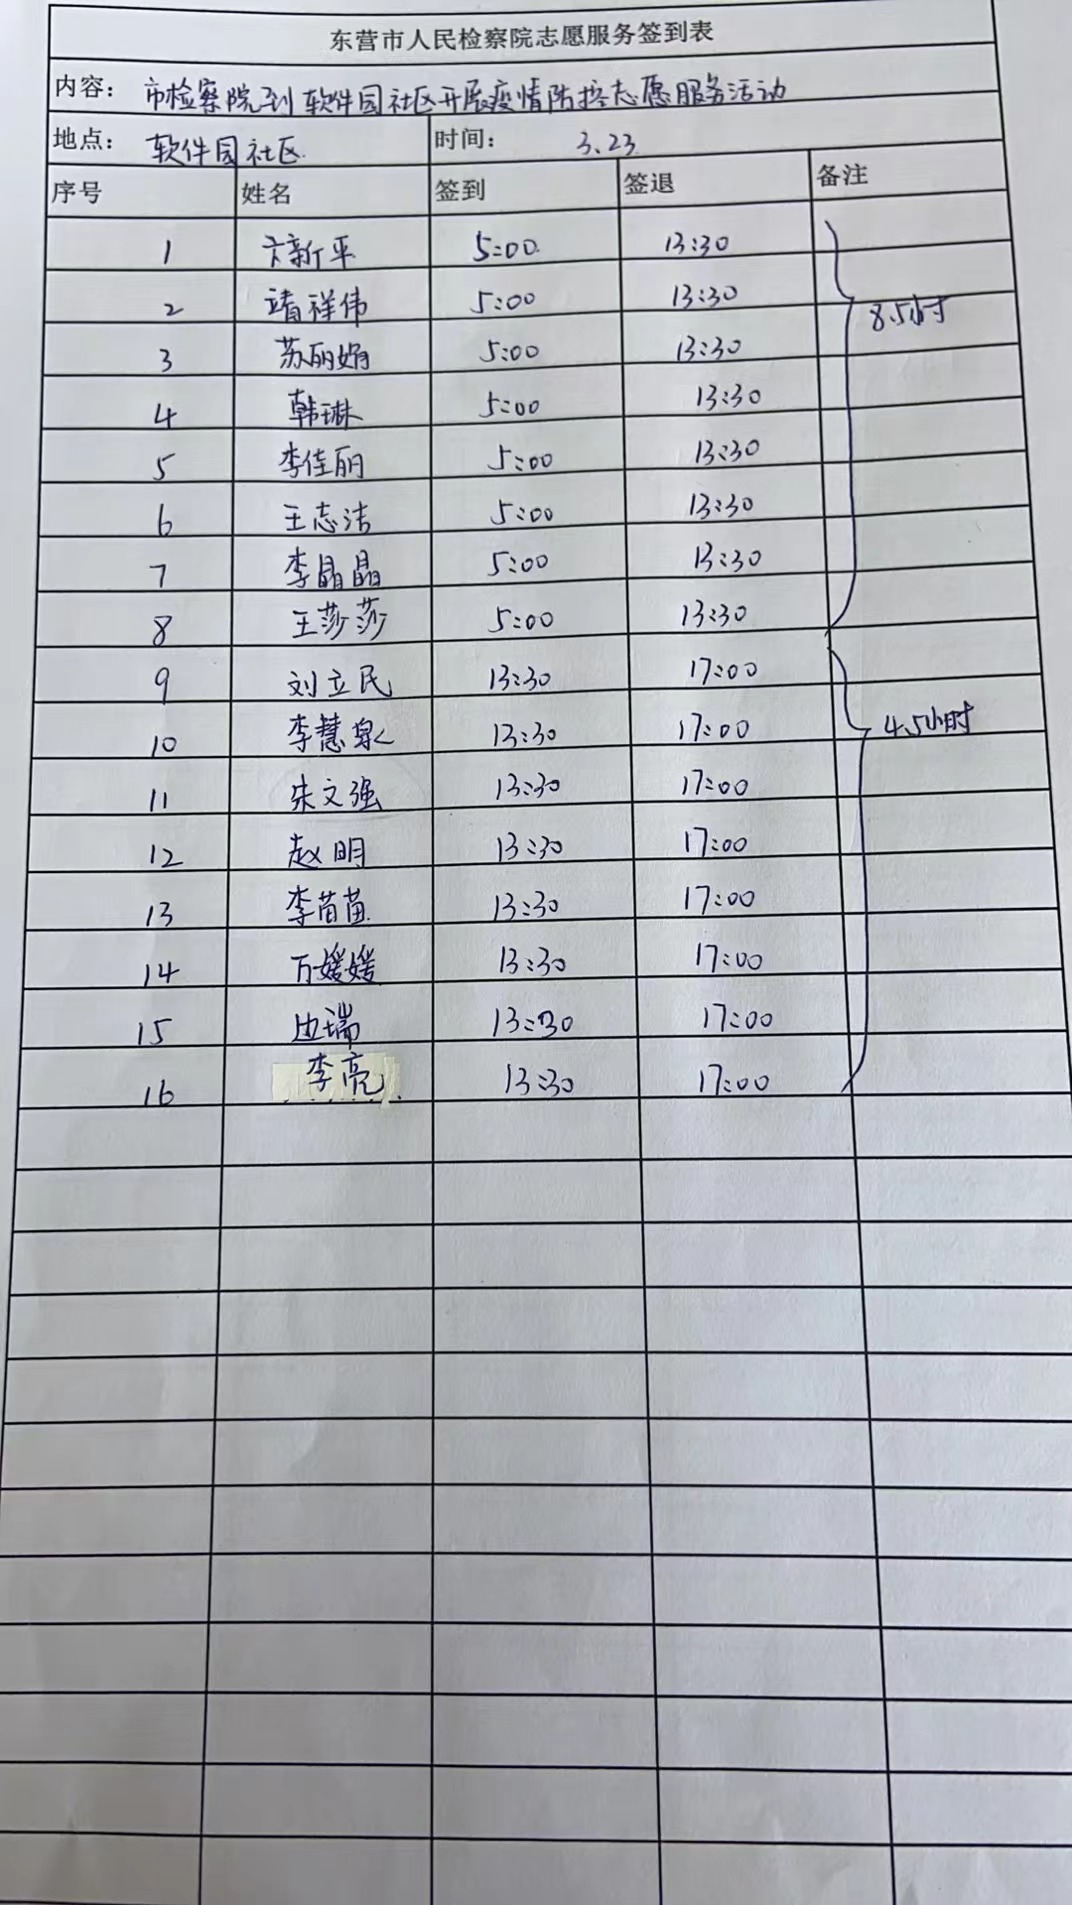 东营市人民检察院志愿服务签到表
内容： 市检察院到软件园社区开展疫情防控志愿服务活动
地点： 软件园社区 时间： 3.23
序号 姓名 签到 签退 备注
1 卞新平 5:00 13:30
2 靖祥伟 5:00 13:30 8.5小时
3 苏丽娟 5:00 13:30
4 韩琳 5:00 13:30
5 李佳丽 5:00 13:30
6 王志洁 5:00 13:30
7 李晶晶 5:00 13:30
8 王莎莎 5:00 13:30
9 刘立民 13:30 17:00
10 李慧泉 13:30 17:00 4.5小时
11 朱文强 13:30 17:00
12 赵明 13:30 17:00
13 李苗苗 13:30 17:00
14 万媛媛 13:30 17:00
15 边瑞 13:30 17:00
16 李亮 13:30 17:00